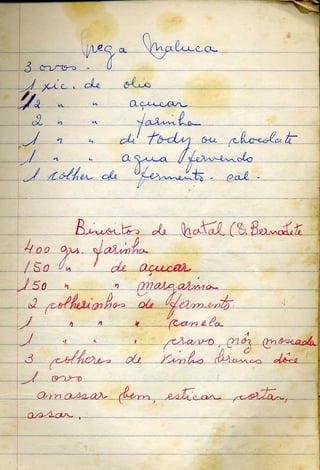 nega maluca
3 ovos.
1 xic. de oleo
1/2 " " açucar
2 " " farinha
1 " " de tody ou chocolate
1 " " agua fervendo
1 colher de fermento. cal.
Biscoitos de natal (S. Bernadete
400 grs. farinha
150 " de açucar
150 " " margarina
2 colherinhas de fermento
1 " " " canela
1 " " " cravo, nóz moscada
3 colheres de vinho branco dôce
1 ovo
amassar bem, esticar cortar,
assar.